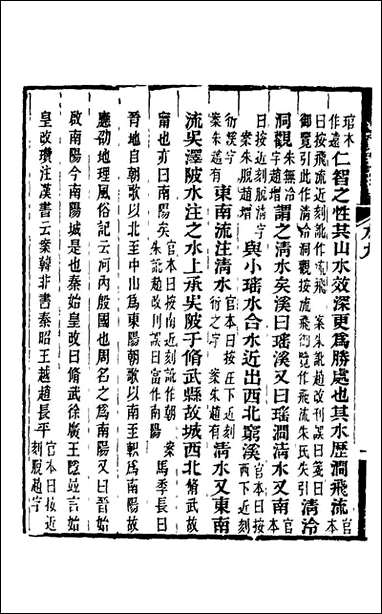 琯本作遠仁智之性其山水效深更爲勝處也其水歷澗飛流官本
日按飛流近刻訛作流飛 案朱訛趙改刊誤曰箋曰御覽引此作清泠洞觀按流飛御覽作飛流朱氏失引清泠
洞觀朱無泠字趙增謂之清水矣溪曰瑤溪又曰瑤澗清水又南官本
日按近刻脫清字 案朱脫趙增與小瑤水合水近出西北窮溪官本曰按西下近刻
衍漢字 案朱趙有東南流注清水官本曰按注下近刻衍之字 案朱趙有清水又東南
流吳澤陂水注之水上承吳陂于脩武縣故城西北脩武故
甯也亦曰南陽矣官本曰按南近刻訛作朝 案朱訛趙改刊誤曰當作南陽馬季長曰
晉地自朝歌以北至中山爲東陽朝歌以南至軹爲南陽故
應劭地理風俗記云河内殷國也周名之爲南陽又曰晉始
啟南陽今南陽城是也秦始皇改曰脩武徐廣王隱竝言始
皇改瓚注漢書云案韓非書秦昭王越趙長平官本曰按近刻脫趙字